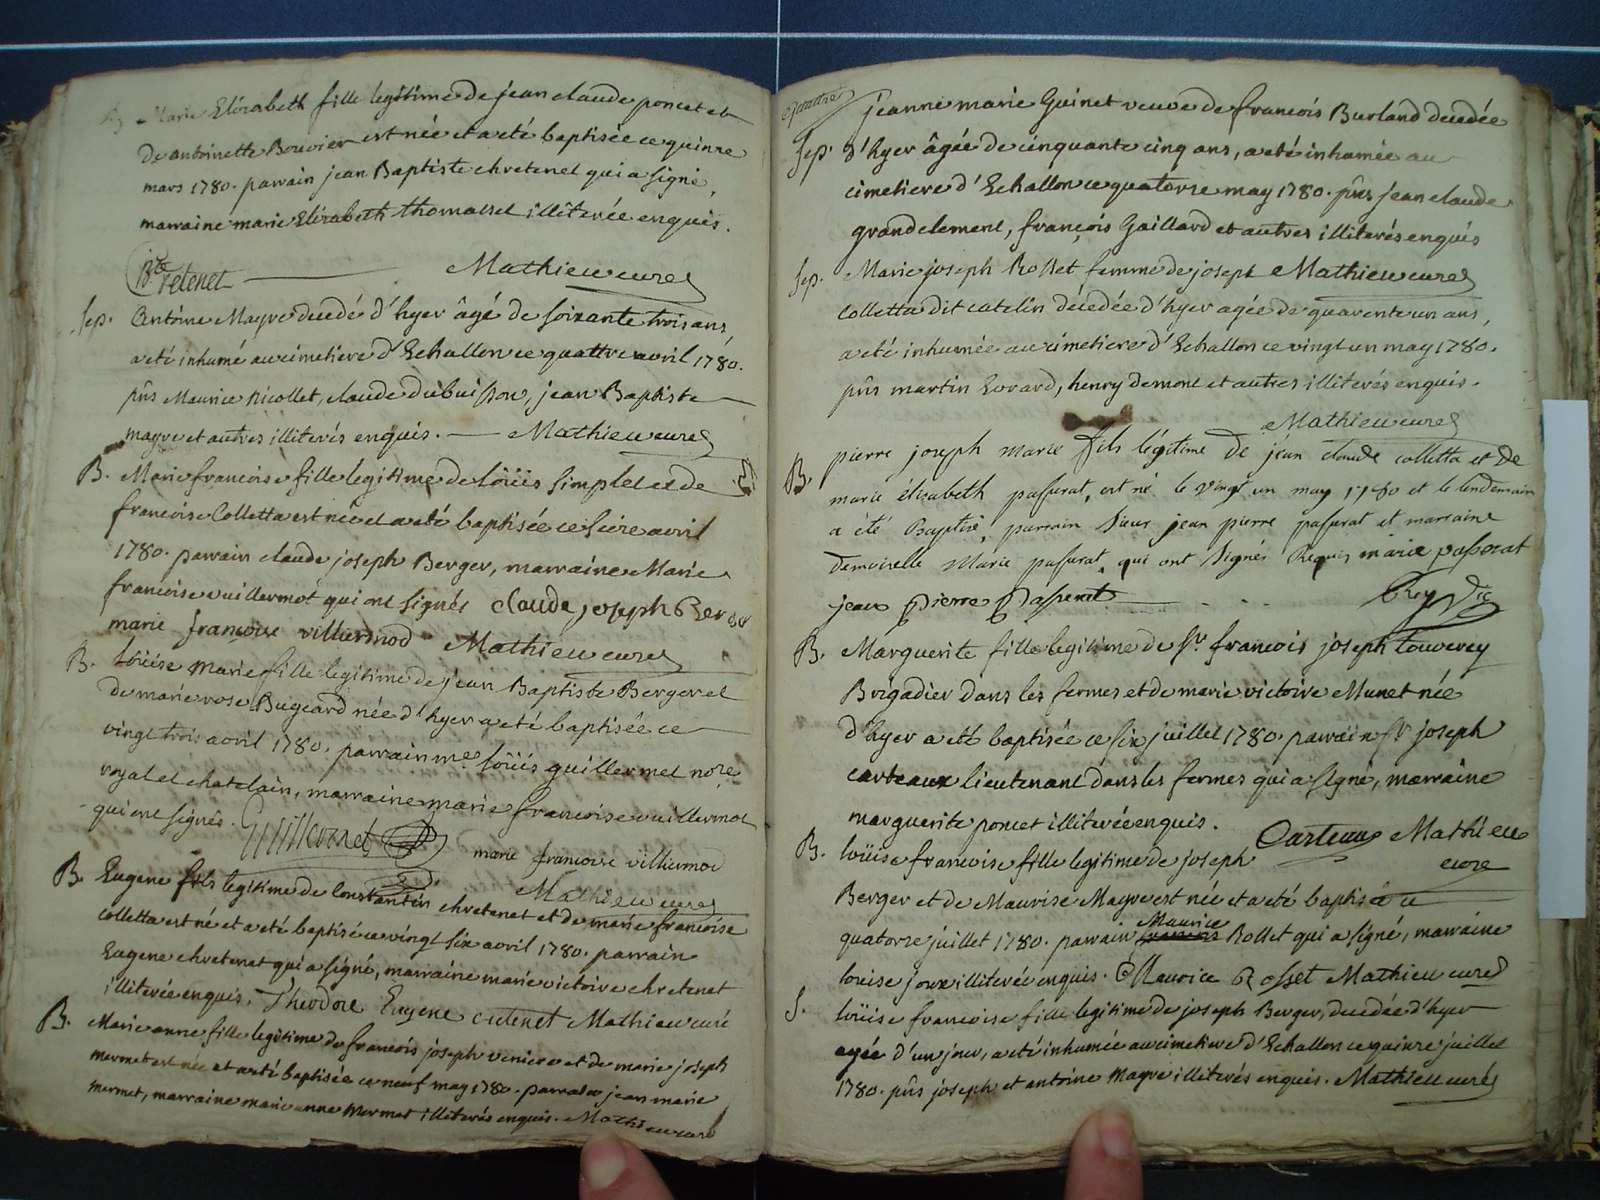 B. Marie Elizabeth fille legitime de jean claude poncet et
de antoinette Bouvier est née et a eté baptisée ce quinze
mars 1780. parrain jean Baptiste chretenet qui a signé,
marraine marie Elizabeth thomasset illiterée enquis.
Bte cretenet Mathieu curé
sep. Antoine Mayve decedé d'hyer âgé de soixante trois ans,
a eté inhumé au cimetiere d'Echallon ce quattre avril 1780.
pñs Maurice Nicollet, claude dubuisson, jean Baptiste
mayve et autres illiterés enquis. Mathieu curé
B. Marie francoise fille legitime de loüis simplet et de
francoise Colletta est née et a eté baptisée ce seize avril
1780. parrain claude joseph Berger, marraine Marie
francoise vuillermot qui ont signés claude joseph Berger
marie françoise villiermod Mathieu curé
B. loüise Marie fille legitime de jean Baptiste Berger et
de marie rose Bugeard née d'hyer a eté baptisée ce
vingt trois avril 1780. parrain me loüis guillermet nore
royal et chatelain, marraine marie francoise vuillermot
qui ont signés. Guillermet marie françoise villiermod
Mathieu curé
B. Eugene fils legitime de Constantin chretenet et de marie francoise
colletta est né et a eté baptisé ce vingt six avril 1780. parrain
Eugene chretenet qui a signé, marraine marie victoire chretenet
illiterée enquis. Theodore Eugene cretenet Mathieu curé
B. Marie anne fille legitime de francois joseph veniere et de marie joseph
mermet est née et a eté baptisée ce neuf may 1780. parrain jean marie
mermet, marraine marie anne Mermet illiterés enquis. Mathieu curé
jeanne marie Guinet veuve de francois Burland decedée
sep. d'hyer âgée de cinquante cinq ans, a eté inhumée au
cimetiere d'Echallon ce quatorze may 1780. pñs jean claude
grandclement, françois Gaillard et autres illiterés enquis
sep. Marie joseph Rosset femme de joseph Mathieu curé
Colletta dit catelin décedée d'hyer agée de quarente un ans,
a eté inhumée au cimetiere d'Echallon ce vingt un may 1780.
pñs martin Evrard, henry demont et autres illiterés enquis.
Mathieu curé
B. pierre joseph marie fils légitime de jean claude colletta et de
marie élisabeth passerat, est né le vingt un may 1780 et le lendemain
a été Baptisé, parrain sieur jean pierre passerat et marraine
demoiselle Marie passerat, qui ont signés Requis marie passerat
jean pierre passerat Rey vic
B. Marguerite fille legitime de Sr francois joseph touverey
Brigadier dans les fermes et de marie victoire Munet née
d'hyer a eté baptisée ce six juillet 1780. parrain Sr joseph
carteaux lieutenant dans les fermes qui a signé, marraine
marguerite poncet illiterée enquis. Carteaux Mathieu
curé
B. loüise francoise fille legitime de joseph
Berger et de Maurise Mayve est née et a eté baptisée ce
quatorze juillet 1780. parrain Maurice Rosset qui a signé, marraine
louise joux illiterée enquis. Maurice Rosset Mathieu curé
S. loüise francoise fille legitime de joseph Berger, decedée d'hyer
agée d'un jour, a eté inhumée au cimetiere d'Echallon ce quinze juillet
1780. pñs joseph et antoine Mayve illiterés enquis. Mathieu curé